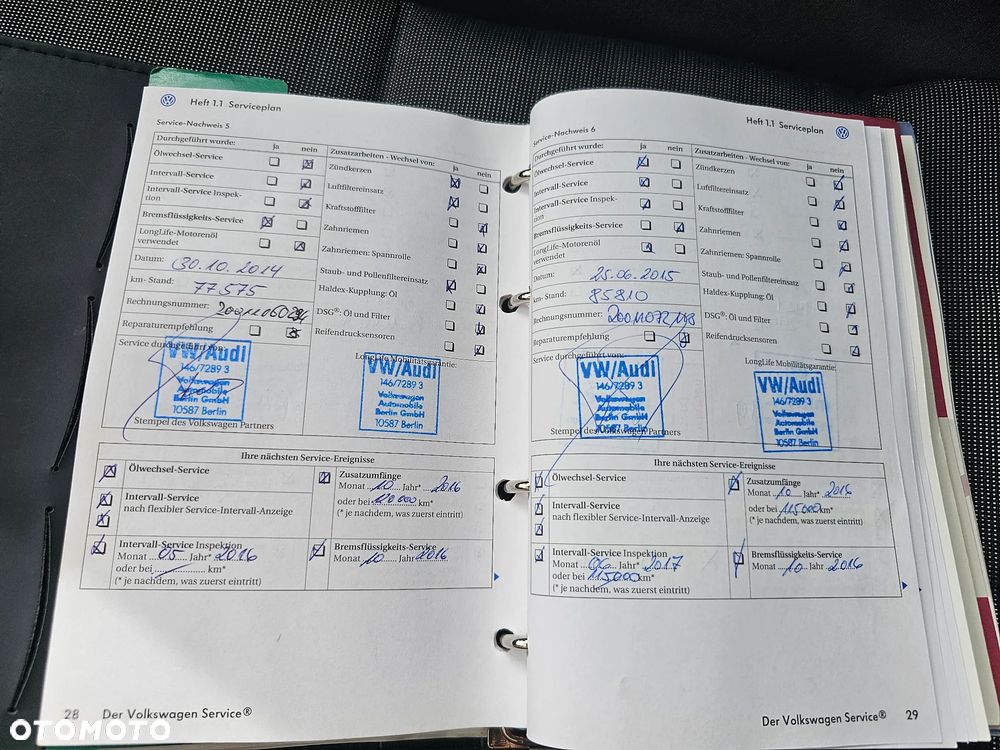 Heft 1.1 Serviceplan
Service-Nachweis 5
Durchgeführt wurde: ja nein
Ölwechsel-Service
Intervall-Service
Intervall-Service Inspek-
tion
Bremsflüssigkeits-Service
LongLife-Motorenöl
verwendet
Datum: 30.10.2014
km-Stand: 77575
Rechnungsnummer:
Reparaturempfehlung
Service durchgeführt von:
VW/Audi
146/7289 3
Volkswagen
Automobile
Berlin GmbH
10587 Berlin
Stempel des Volkswagen Partners
Zusatzarbeiten - Wechsel von: ja nein
Zündkerzen
Luftfiltereinsatz
Kraftstofffilter
Zahnriemen
Zahnriemen: Spannrolle
Staub- und Pollenfiltereinsatz
Haldex-Kupplung: Öl
DSG®: Öl und Filter
Reifendrucksensoren
LongLife Mobilitätsgarantie:
VW/Audi
146/7289 3
Volkswagen
Automobile
Berlin GmbH
10587 Berlin
Ihre nächsten Service-Ereignisse
Ölwechsel-Service
Intervall-Service
nach flexibler Service-Intervall-Anzeige
Intervall-Service Inspektion
Monat ...05... Jahr* 2016
oder bei ........ km*
(* je nachdem, was zuerst eintritt)
Zusatzumfänge
Monat 10 Jahr* 2016
oder bei 110000 km*
(* je nachdem, was zuerst eintritt)
Bremsflüssigkeits-Service
Monat 10 Jahr 2016
28 Der Volkswagen Service®
OTOMOTO
Heft 1.1 Serviceplan
Service-Nachweis 6
Durchgeführt wurde: ja nein
Ölwechsel-Service
Intervall-Service
Intervall-Service Inspek-
tion
Bremsflüssigkeits-Service
LongLife-Motorenöl
verwendet
Datum: 25.06.2015
km-Stand: 85810
Rechnungsnummer:
Reparaturempfehlung
Service durchgeführt von:
VW/Audi
146/7289 3
Volkswagen
Automobile
Berlin GmbH
10587 Berlin
Stempel des Volkswagen Partners
Zusatzarbeiten - Wechsel von: ja nein
Zündkerzen
Luftfiltereinsatz
Kraftstofffilter
Zahnriemen
Zahnriemen: Spannrolle
Staub- und Pollenfiltereinsatz
Haldex-Kupplung: Öl
DSG®: Öl und Filter
Reifendrucksensoren
LongLife Mobilitätsgarantie:
VW/Audi
146/7289 3
Volkswagen
Automobile
Berlin GmbH
10587 Berlin
Ihre nächsten Service-Ereignisse
Ölwechsel-Service
Intervall-Service
nach flexibler Service-Intervall-Anzeige
Intervall-Service Inspektion
Monat ...06... Jahr* 2017
oder bei 115000 km*
(* je nachdem, was zuerst eintritt)
Zusatzumfänge
Monat 10 Jahr* 2016
oder bei 115000 km*
(* je nachdem, was zuerst eintritt)
Bremsflüssigkeits-Service
Monat 10 Jahr 2016
Der Volkswagen Service® 29